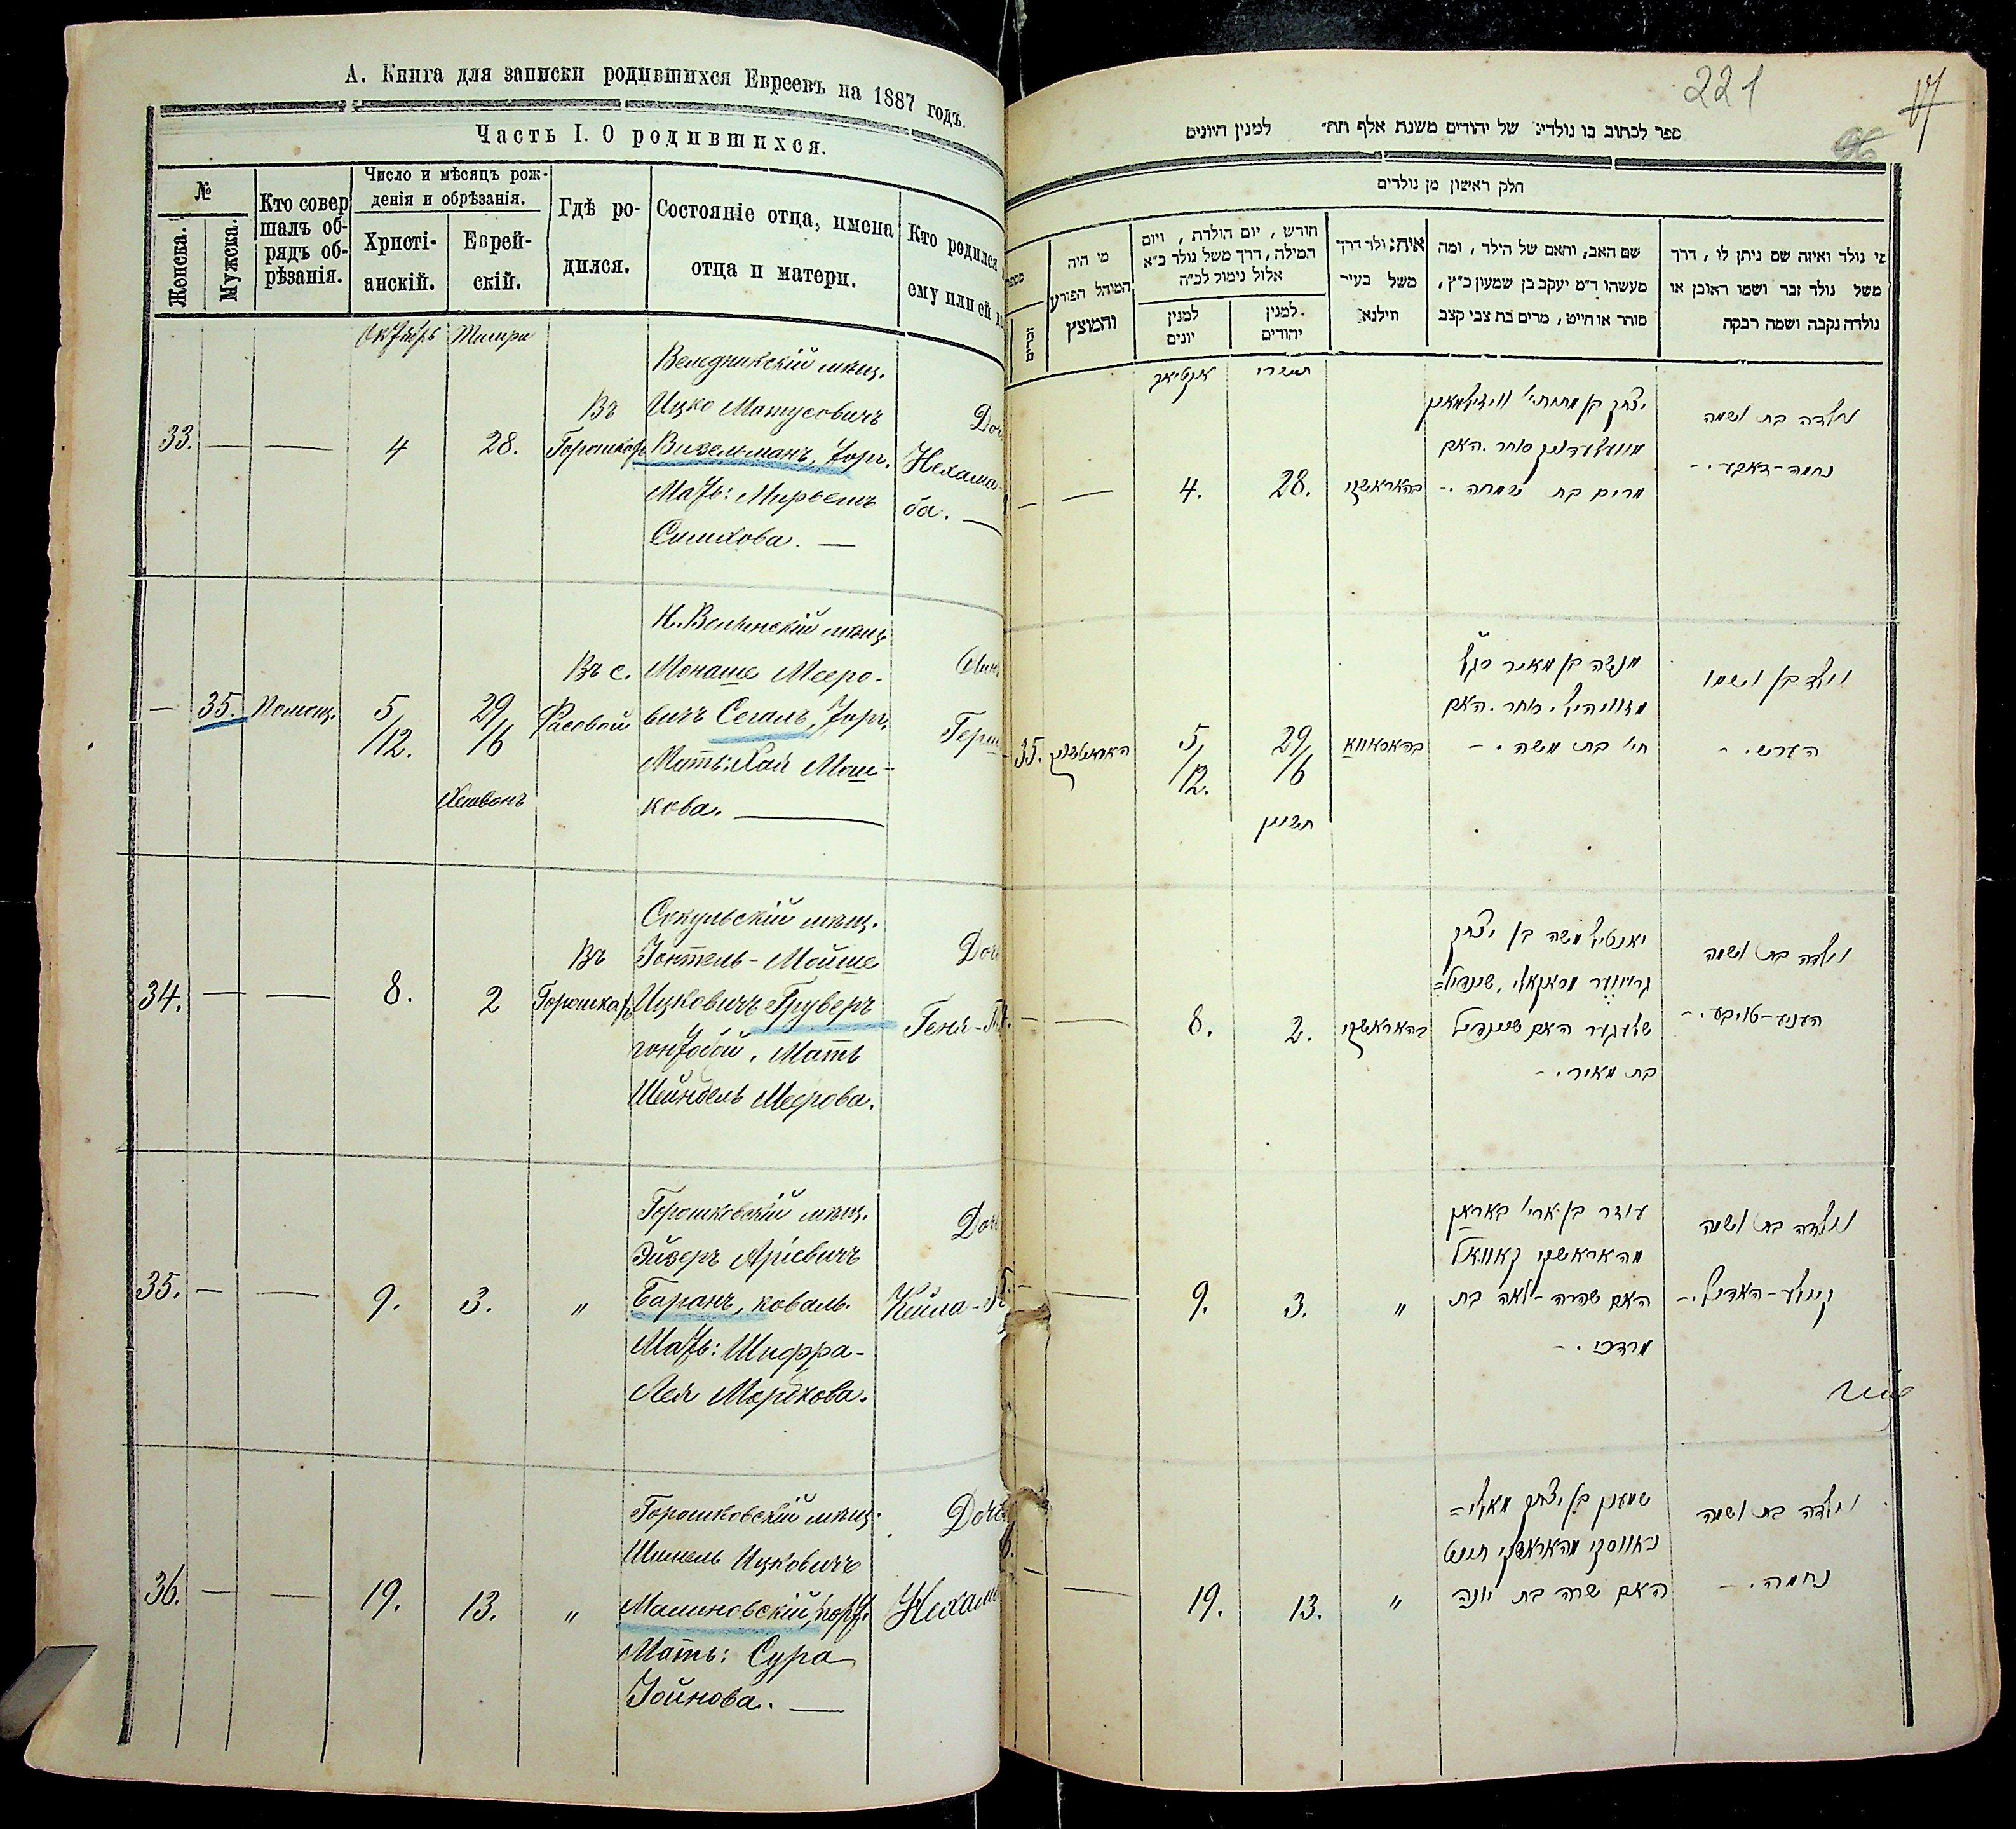 А. Книга для записки родившихся Евреевъ на 1887 годъ.
Часть I. О родившихся.
№
Женска.
Мужска.
Кто совер
шалъ об-
рядъ об-
рѣзанія.
Число и мѣсяцъ рож-
денія и обрѣзанія.
Христі-
анскій.
Еврей-
скій.
Гдѣ ро-
дился.
Состояніе отца, имена
отца и матери.
Кто родился
ему или ей
Октябрь Тишри
33. — — 4 28.
Въ
Горошкахъ
Веледникскій мѣщ.
Ицко Матусовичъ
Визельманъ, торг.
Мать: Мирьемъ
Симхова. —
Доч
Нехама-
ба. —
— 35. Помощ. 5/12. 29/6
Хешвонъ
Въ с.
Фасовой
Н. Волынскій мѣщ.
Монаше Мееро-
вичъ Сегалъ, торг.
Мать: Хая Мош-
кова. —
Сынъ
Герш
34. — — 8. 2
Въ
Горошкахъ
Сокульскій мѣщ.
Іонтель-Мойше
Ицковичъ Груверъ
Мать
Шейндель Меерова.
Доч
Геня-
35. — — 9. 3. "
Горошковскій мѣщ.
Эйзеръ Аріевичъ
Баранъ, коваль.
Мать: Шифра-
Лея Мордкова.
Доч
Кейла-
36. — — 19. 13. "
Горошковскій мѣщ.
Шимель Ицковичъ
Малиновскій, порт.
Мать: Сура
Іойнова. —
Доч
Нехам
221
17
96
ספר לכתוב בו נולדים של יהודים משנת אלף תת״ למנין היונים
חלק ראשון מן נולדים
מי נולד ואיזה שם ניתן לו, דרך
משל נולד זכר ושמו ראובן או
נולדה נקבה ושמה רבקה
שם האב, והאם של הילד, ומה
מעשהו ד״מ יעקב בן שמעון כ״ץ,
סוחר או חייט, מרים בת צבי קצב
איה: ולד דרך
משל בעיר
ווילנא
חודש, יום הולדת, ויום
המילה, דרך משל נולד כ״א
אלול נימול לכ״ח
למנין
יהודים
למנין
יונים
מי היה
המוהל הפורע
והמוצץ
זכרים
תשרי
אקטיאב
ונולדה בת ושמה
נחמה-
יצחק בן מתתי׳ וויזילמאן
סוחר. האם
מרים בת שמחה. -
בהאראשקי
28.
4.
—
ונולד בן ושמו
הערש. -
מנשה בן מאיר סג״ל
סוחר. האם
חי׳ בת משה. -
29/6
5/12.
35.
חשון
ונולדה בת ושמה
הענע-טויבע. -
יאנטיל משה בן יצחק
האם שיינדיל
בת מאיר. -
בהאראשקי
2.
8.
—
ונולדה בת ושמה
קיילע-האדיל. -
עוזר בן ארי׳ באראן
מהאראשקי קאוואל
האם שפרה-לאה בת
מרדכי. -
"
3.
9.
—
ונולדה בת ושמה
נחמה. -
שמעון בן יצחק מאלי=
נאווסקי מהאראשקי חייט
האם שרה בת יונה
"
13.
19.
—